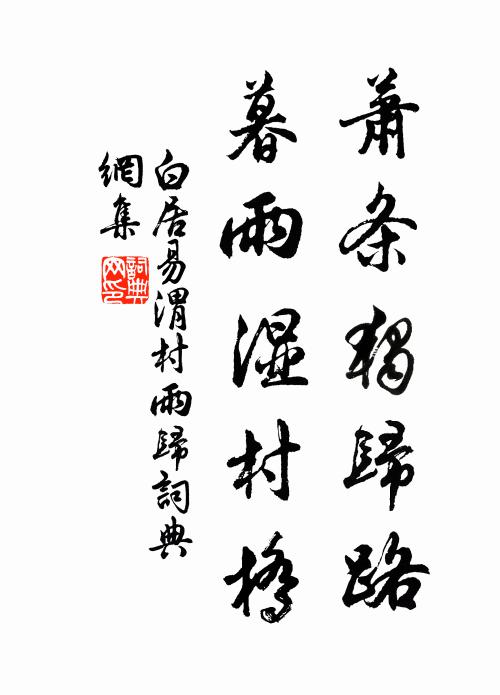 蕭条獨歸路
暮雨濕村橋
白居易渭村雨歸詞典
網集
詞典
网印